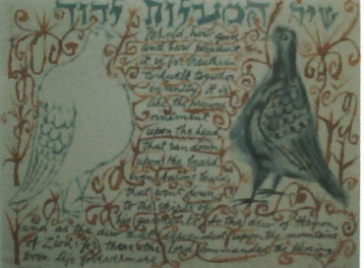 שיר המעלות לדוד
Behold, how good
and how pleasant
it is for brethren
to dwell together
in unity. It is
like the precious
ointment
upon the head,
that ran down
upon the beard
even Aarons beard,
that went down
to the skirts of
his garments; As the dew of Hermon
and as the dew that descended upon the mountains
of Zion: for there the Lord commanded the blessing
even life forevermore